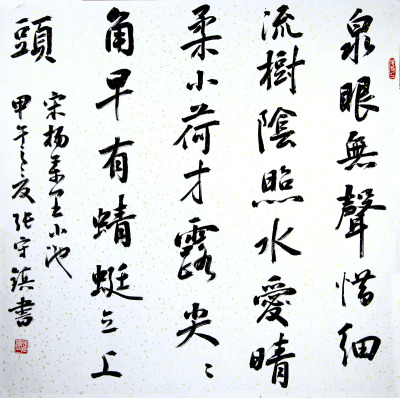 泉眼無聲惜細
流樹陰照水愛晴
柔小荷才露尖〻
角早有蜻蜓立上
頭
宋杨萬里小池
甲午之夏张守書